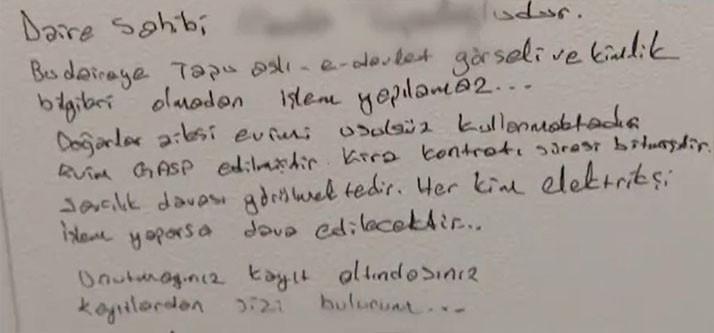 Daire Sahibi udur.
Bu daireye Tapu aslı - e-devlet görseli ve kimlik
bilgileri olmadan işlem yapılamaz...
Doğanlar ailesi evimi usulsüz kullanmaktadır
Evim GASP edilmiştir. Kira kontratı süresi bitmişdir.
Savcılık davası görülmektedir. Her kim elektrikçi
işlem yaparsa dava edilecektir...
Unutmayınız kayıt altındasınız
Kayıtlardan sizi bulurum...